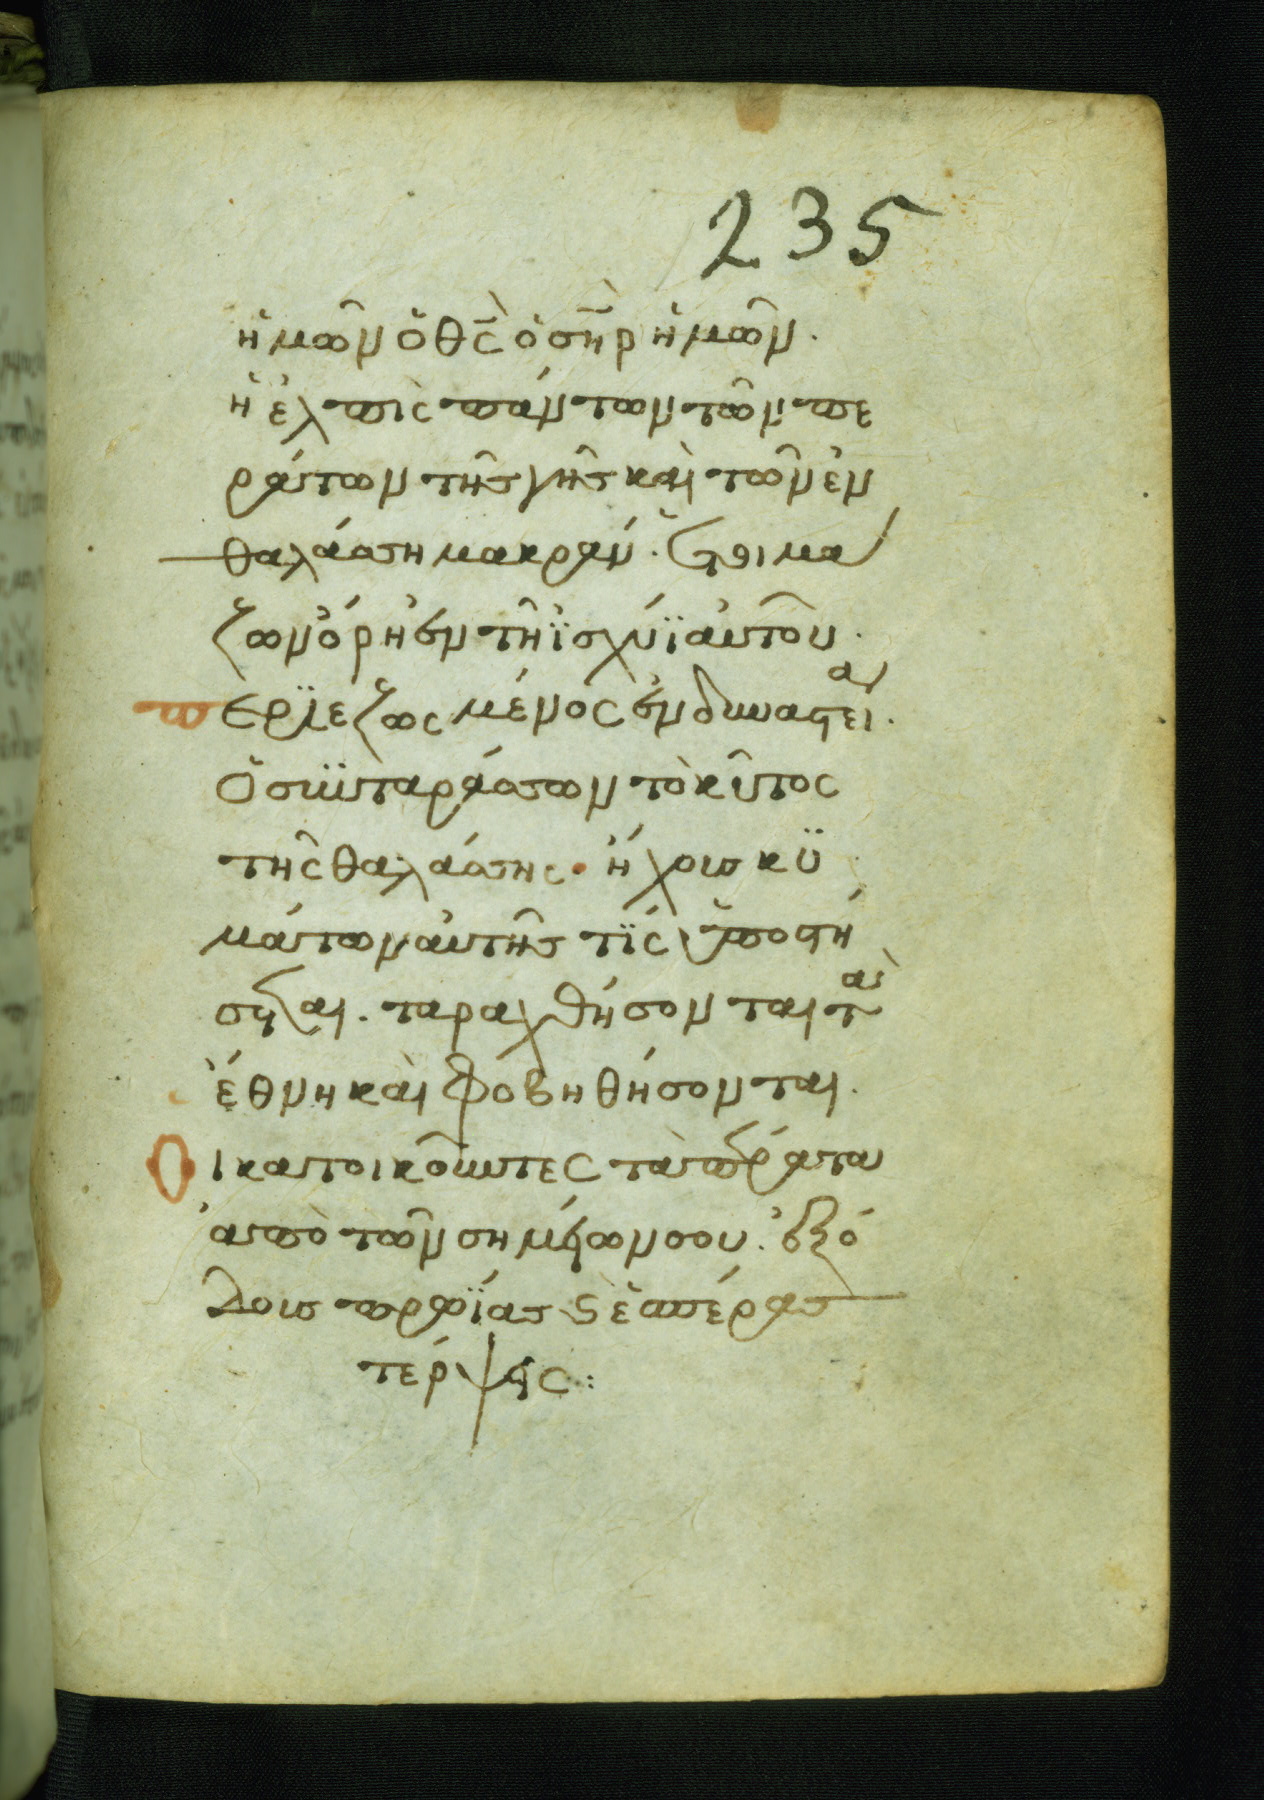 235
ἡμῶν ὁ θς̅ ὁ ση̅ρ ἡμῶν.
ἡ ἐλπὶς πάντων τῶν πε
ράτων τῆς γῆς καὶ τῶν ἐν
θαλάσση μακράν. Ετοιμα
ζων ὄρη ἐν τῆ ἰσχύϊ αὐτοῦ.
περϊεζωσμένος ἐν δυναστεία.
Ο συνταράσσων τὸ κῦτος
τῆς θαλάσσης. ἤχους κϋ
μάτων αὐτῆς τΐς ὑποστή
σεται. ταραχθήσονται τὰ
ἔθνη καὶ φοβηθήσονται.
Οι κατοικοῦντες τὰ πέρατα
ἀπὸ τῶν σημείων σου. ἐξό
δους πρωΐας ς ἑσπέρας
τέρψεις: